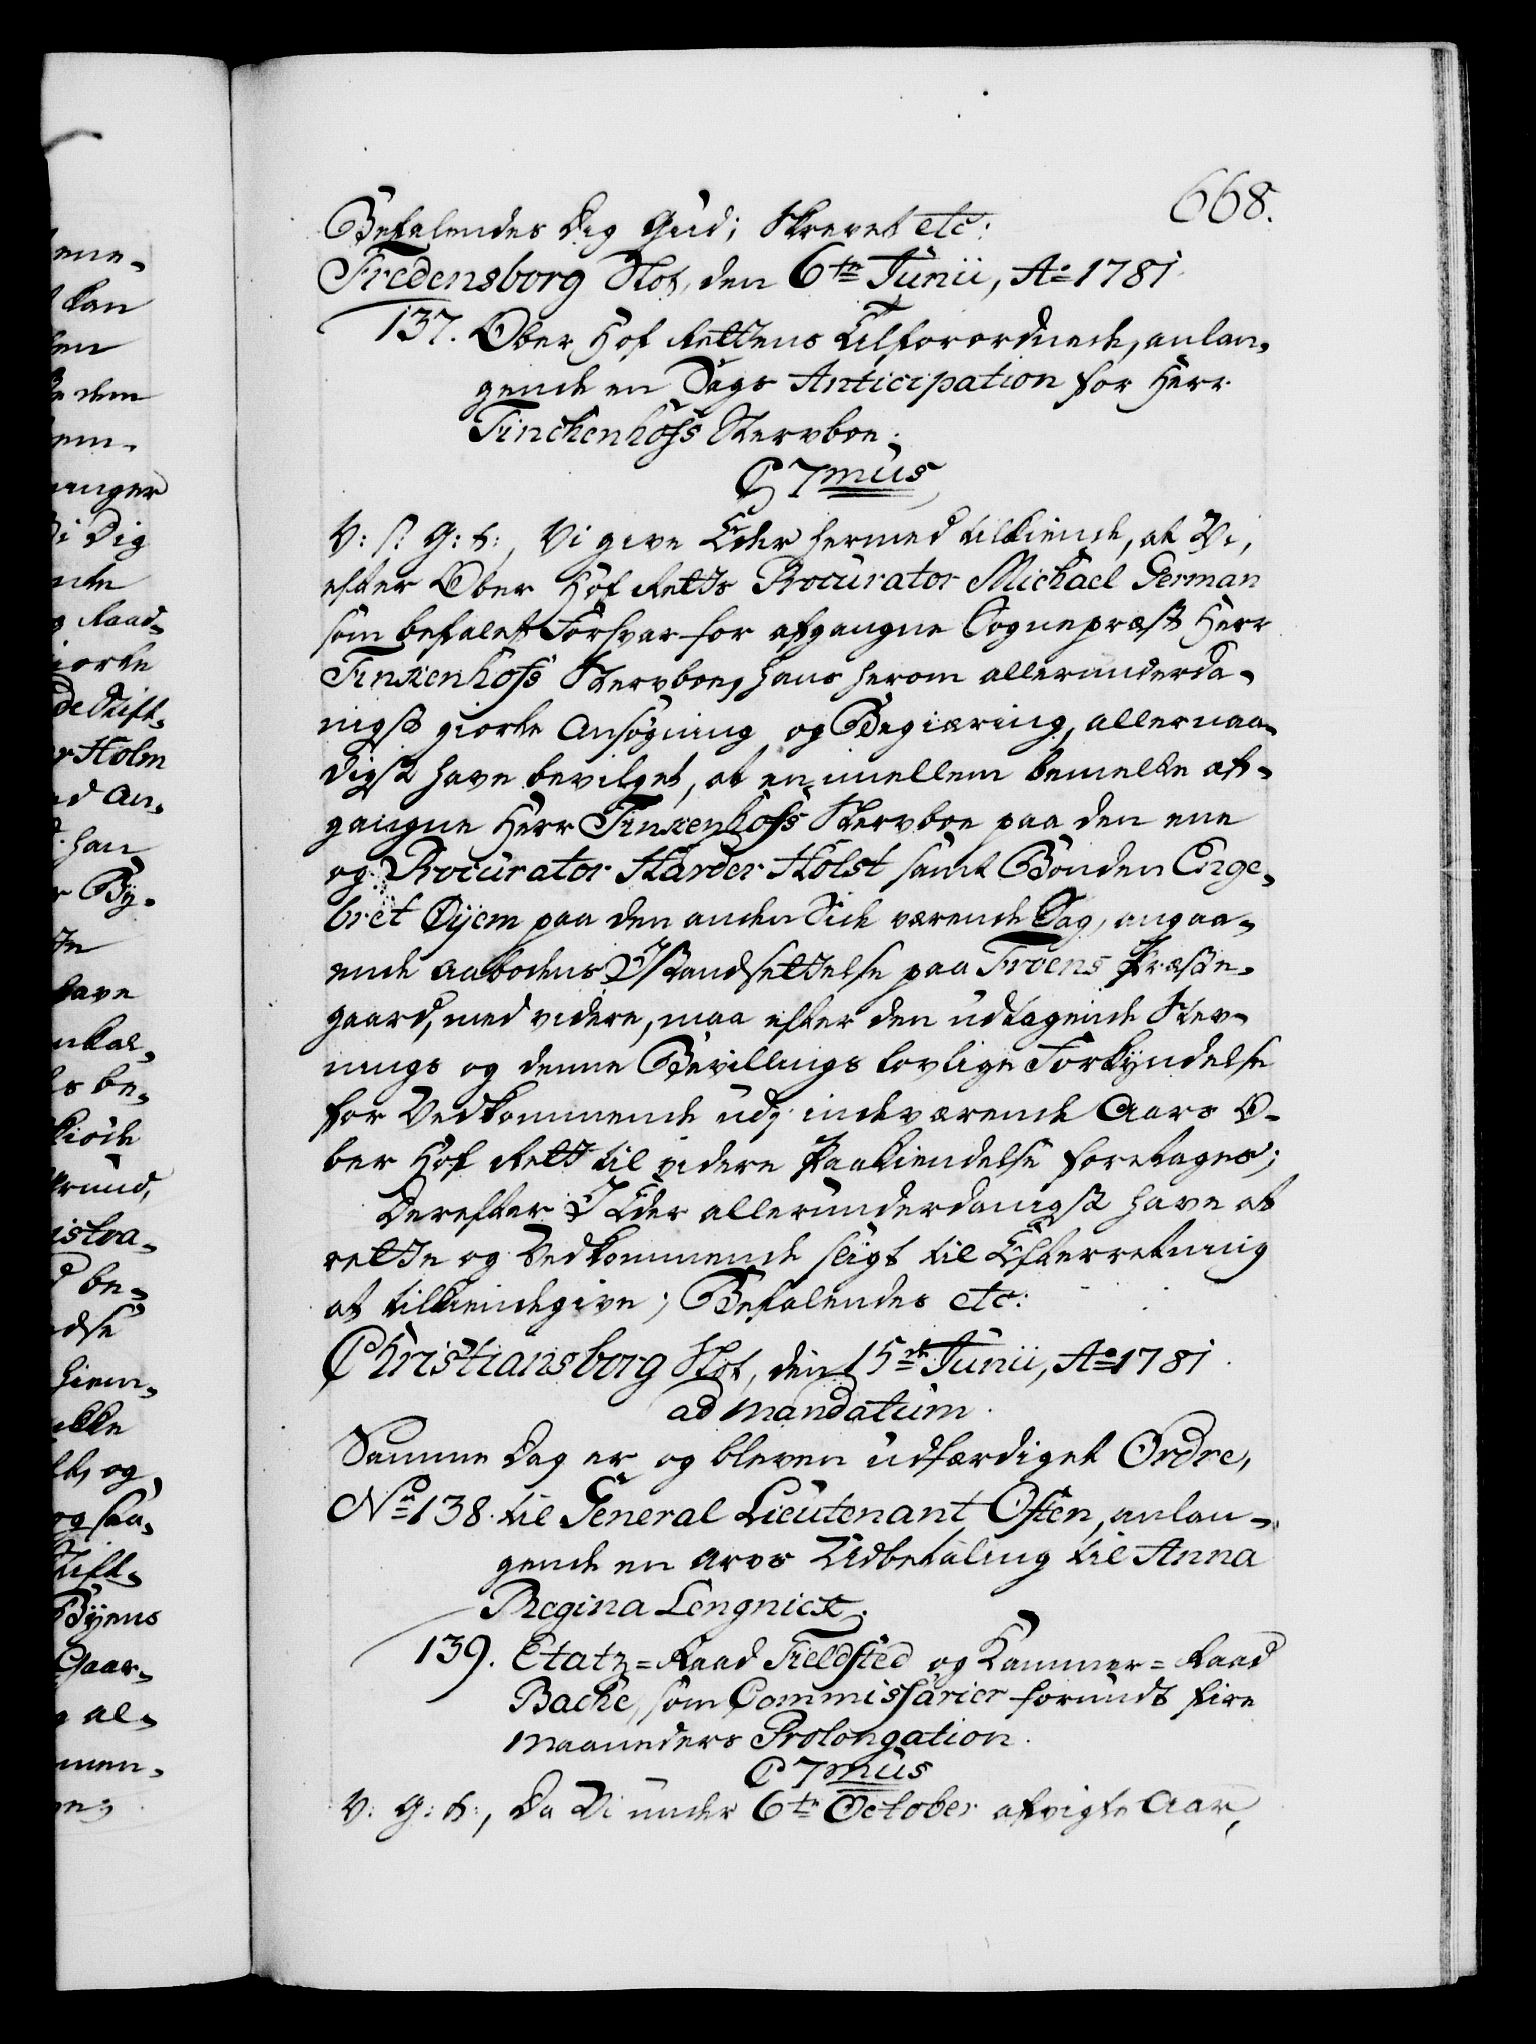 668.
Befalendes Dig Gud; Skrevet etc:
Fredensborg Slot, den 6te Junii, Ao 1781
137. Ober Hof Rettens Tilforordnede, anlan-
gende en Sags Anticipation for Herr
Finckenhofs Stervboe.
C 7mus
V: S: G: T:, Vi give Eder hermed tilkiende, at Vi,
efter Ober Hof Retts Procurator Michael German
som befalet Forsvar for afgangne Sognepræst Herr
Finkenhofs Stervboe, hans herom allerunderda-
nigst giorte Ansøgning og Begiæring, allernaa-
digst have bevilget, at en imellem bemelte af-
gangne Herr Finkenhofs Stervboe paa den ene
og Procurator Harder Holst samt Bonden Enge-
bret Øyem paa den anden Side værende Sag, angaa-
ende Aabodens Istandsettelse paa Froens Præste-
gaard, med videre, maa efter den udtagende Stev-
nings og denne Bevillings lovlige Forkyndelse
for Vedkommende udj indeværende Aars O-
ber Hof Rett til videre Paakiendelse foretages;
Derefter I Eder allerunderdanigst have at
rette og Vedkommende sligt til Efterretning
at tilkiendegive; Befalendes etc:
Christiansborg Slot, den 15de Junii, Ao 1781
ad mandatum.
Samme Dag er og bleven udfærdiget Ordre,
No 138. til General Lieutenant Osten, anlan-
gende en Arvs Udbetaling til Anna
Regina Lengnick.
139. Etatz-Raad Fieldsted og Kammer-Raad
Bache, som Commissarier forundt fire
Maaneders Prolongation.
C 7mus
V: G: T:, Da Vi under 6te October afvigte Aar,